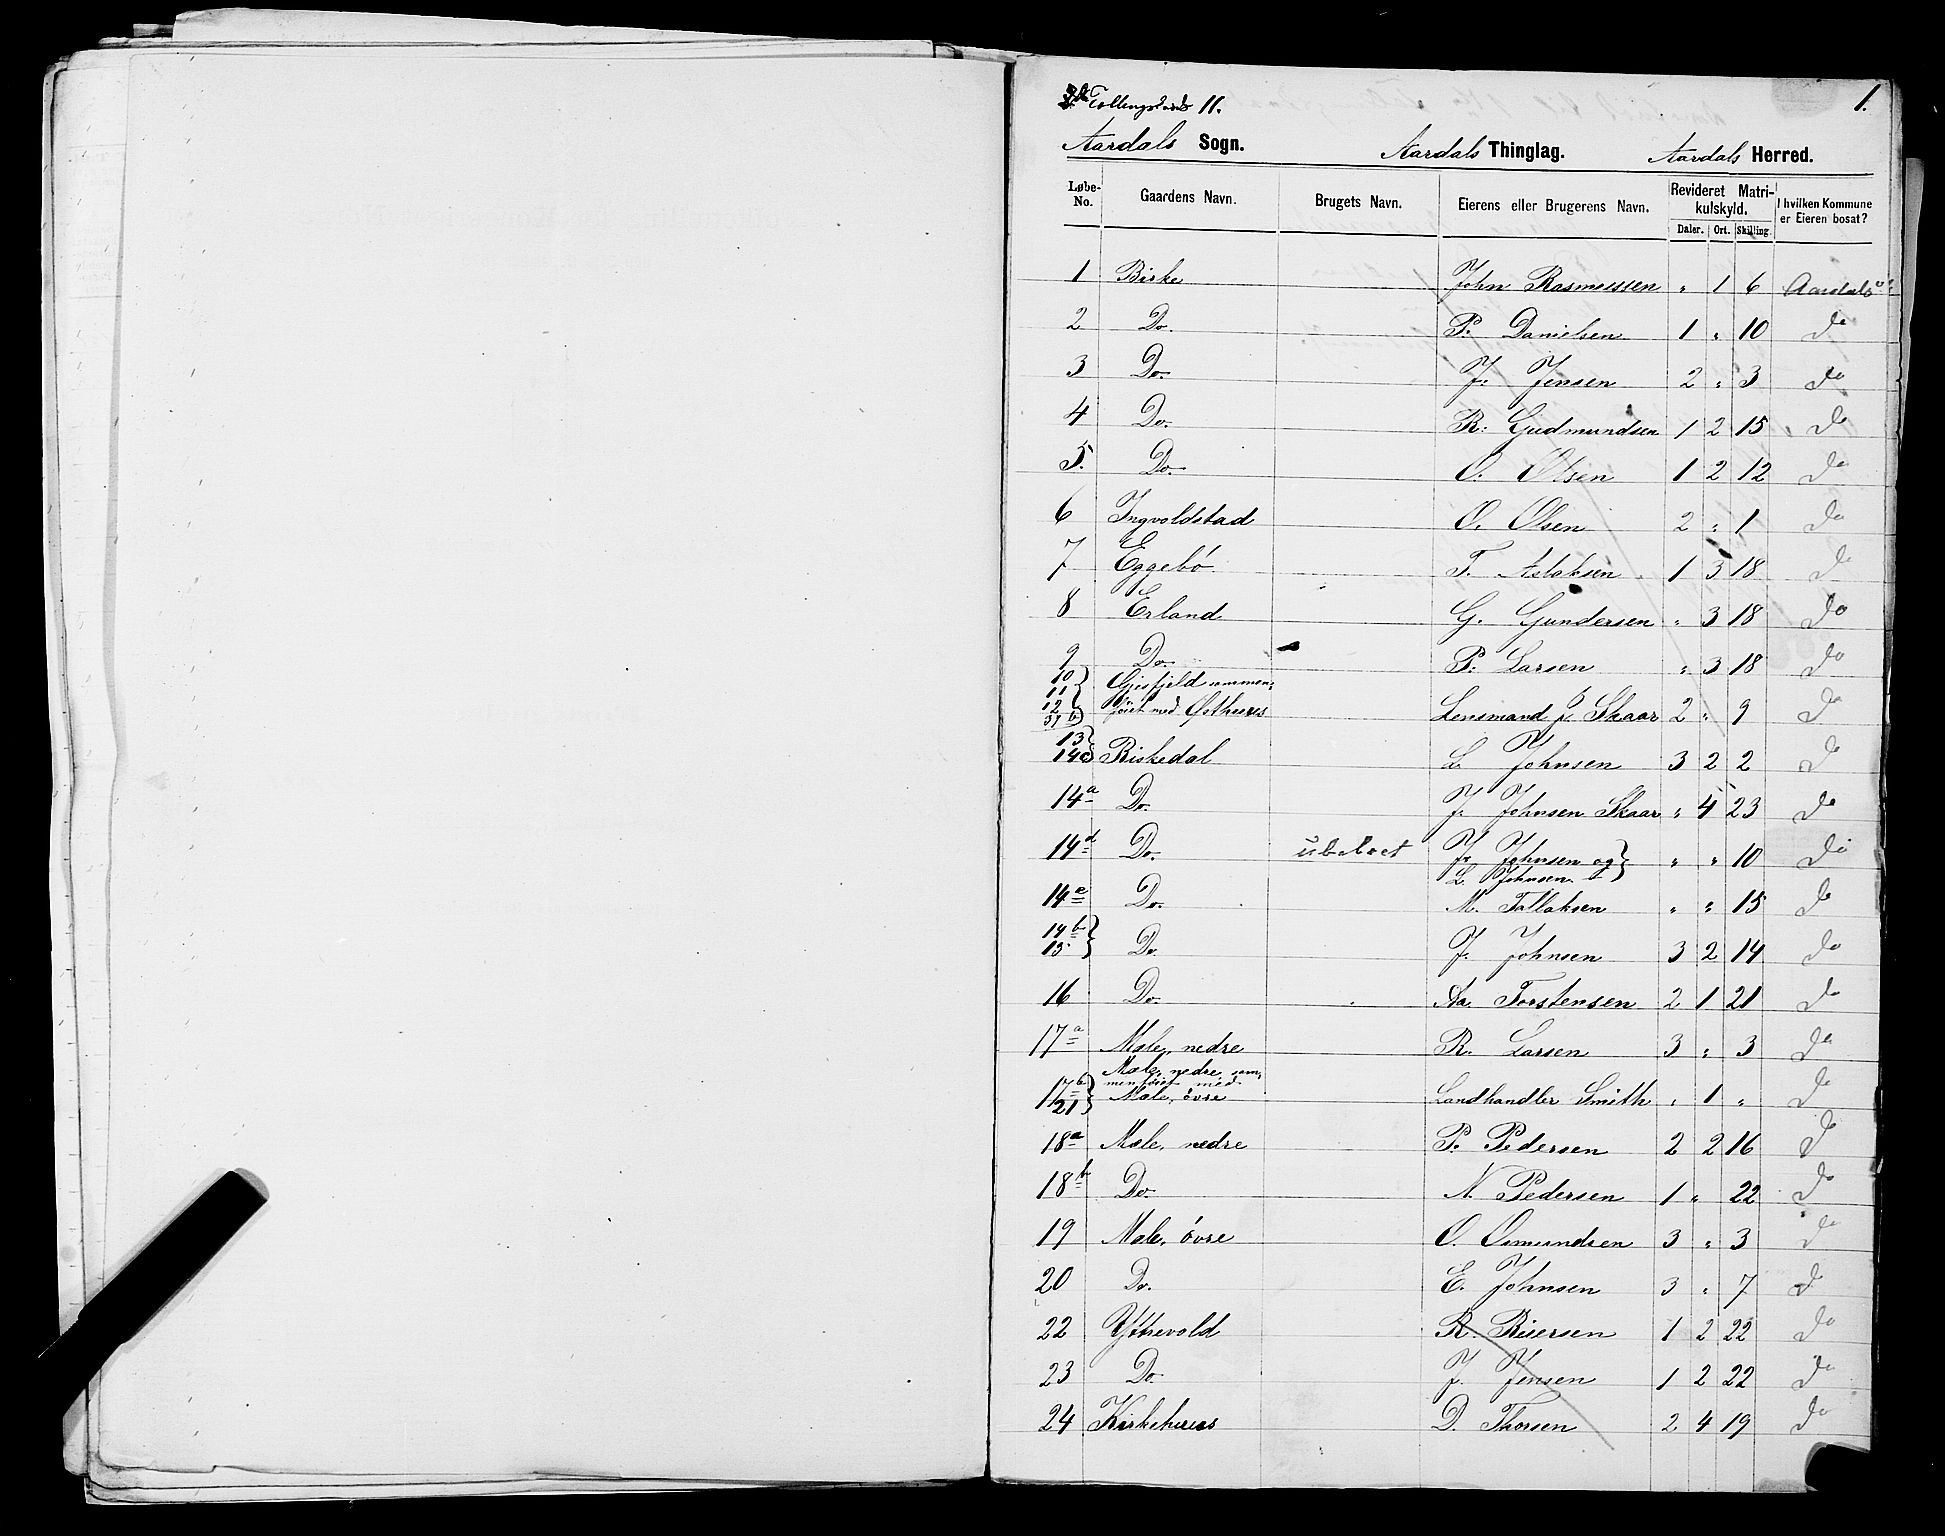 Tællingskreds 11.
1.
Aardals Sogn. Aardals Thinglag. Aardals Herred.
Løbe-No. Gaardens Navn. Brugets Navn. Eierens eller Brugerens Navn. Revideret Matrikulskyld. Daler. Ort. Skilling. I hvilken Kommune er Eieren bosat?
1 Birke John Rasmussen " 1 6 Aardals
2 Do. P. Danielsen 1 " 10 do
3 Do. J. Jensen 2 " 3 do
4 Do. R. Gudmundsen 1 2 15 do
5. Do. O. Olsen 1 2 12 do
6 Ingvoldstad O. Olsen 2 " 1 do
7 Eggebö T. Aslaksen 1 3 18 do
8 Erland G. Gundersen " 3 18 do
9 Do. P. Larsen " 3 18 do
10 11 12 31 b Gjesfjeld sammenföiet med Østhuus Lensmand J. Skaar 2 " 9 do
13 14c Riskedal L. Johnsen 3 2 2 do
14a Do. J. Johnsen Skaar " 4 23 do
14d Do. ubeboet J. Johnsen og L. Johnsen " " 10 do
14e Do. M. Tollaksen " " 15 do
14b 15 Do. J. Johnsen 3 2 14 do
16 Do. Aa. Torstensen 2 1 21 do
17a Mæle, nedre R. Larsen 3 " 3 do
17b 21 Mæle, nedre sammenföiet med Mæle, övre Landhandler Smith " 1 " do
18a Mæle, nedre P. Pedersen 2 2 16 do
18b Do. N. Pedersen 1 " 22 do
19 Mæle, övre O. Osmundsen 3 " 3 do
20 Do. E. Johnsen 3 " 7 do
22 Yttrevold R. Biersen 1 2 22 do
23 Do. J. Jensen 1 2 22 do
24 Kirkehuus D. Thorsen 2 4 19 do